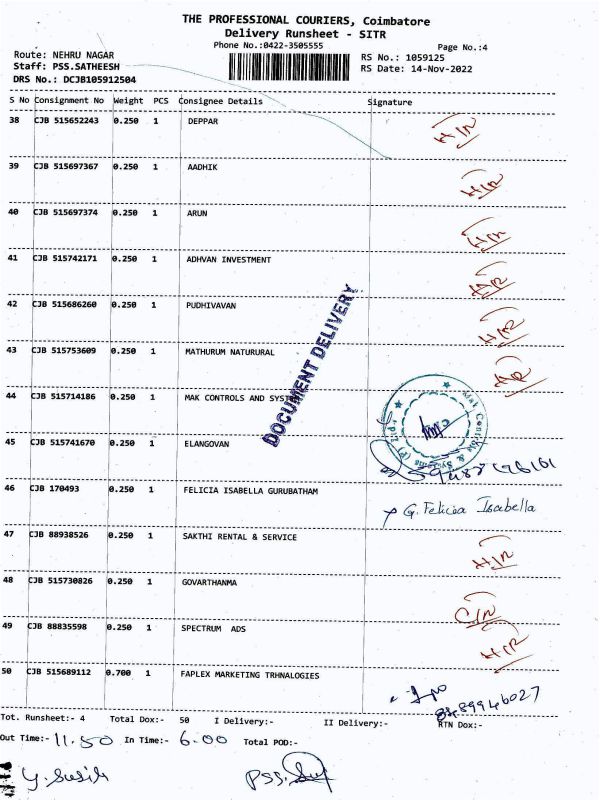 THE PROFESSIONAL COURIERS, Coimbatore
Delivery Runsheet - SITR
Phone No.:0422-3505555
Page No.:4
Route: NEHRU NAGAR
RS No.: 1059125
Staff: PSS.SATHEESH
RS Date: 14-Nov-2022
DRS No.: DCJB105912504
S No Consignment No Weight PCS Consignee Details Signature
38 CJB 515652243 0.250 1 DEPPAR
39 CJB 515697367 0.250 1 AADHIK
40 CJB 515697374 0.250 1 ARUN
41 CJB 515742171 0.250 1 ADHVAN INVESTMENT
42 CJB 515686260 0.250 1 PUDHIVAVAN
43 CJB 515753609 0.250 1 MATHURUM NATURURAL
DOCUMENT DELIVERY
44 CJB 515714186 0.250 1 MAK CONTROLS AND SYSTEMS
Mak Controls & Systems (P) Ltd.
45 CJB 515741670 0.250 1 ELANGOVAN
46 CJB 170493 0.250 1 FELICIA ISABELLA GURUBATHAM G. Felicia Isabella
47 CJB 88938526 0.250 1 SAKTHI RENTAL & SERVICE
48 CJB 515730826 0.250 1 GOVARTHANMA
49 CJB 88835598 0.250 1 SPECTRUM ADS
50 CJB 515689112 0.700 1 FAPLEX MARKETING TRHNALOGIES
Tot. Runsheet:- 4 Total Dox:- 50 I Delivery:- II Delivery:- RTN Dox:-
Out Time:- 11.50 In Time:- 6.00 Total POD:-
Y. Susila PSS.